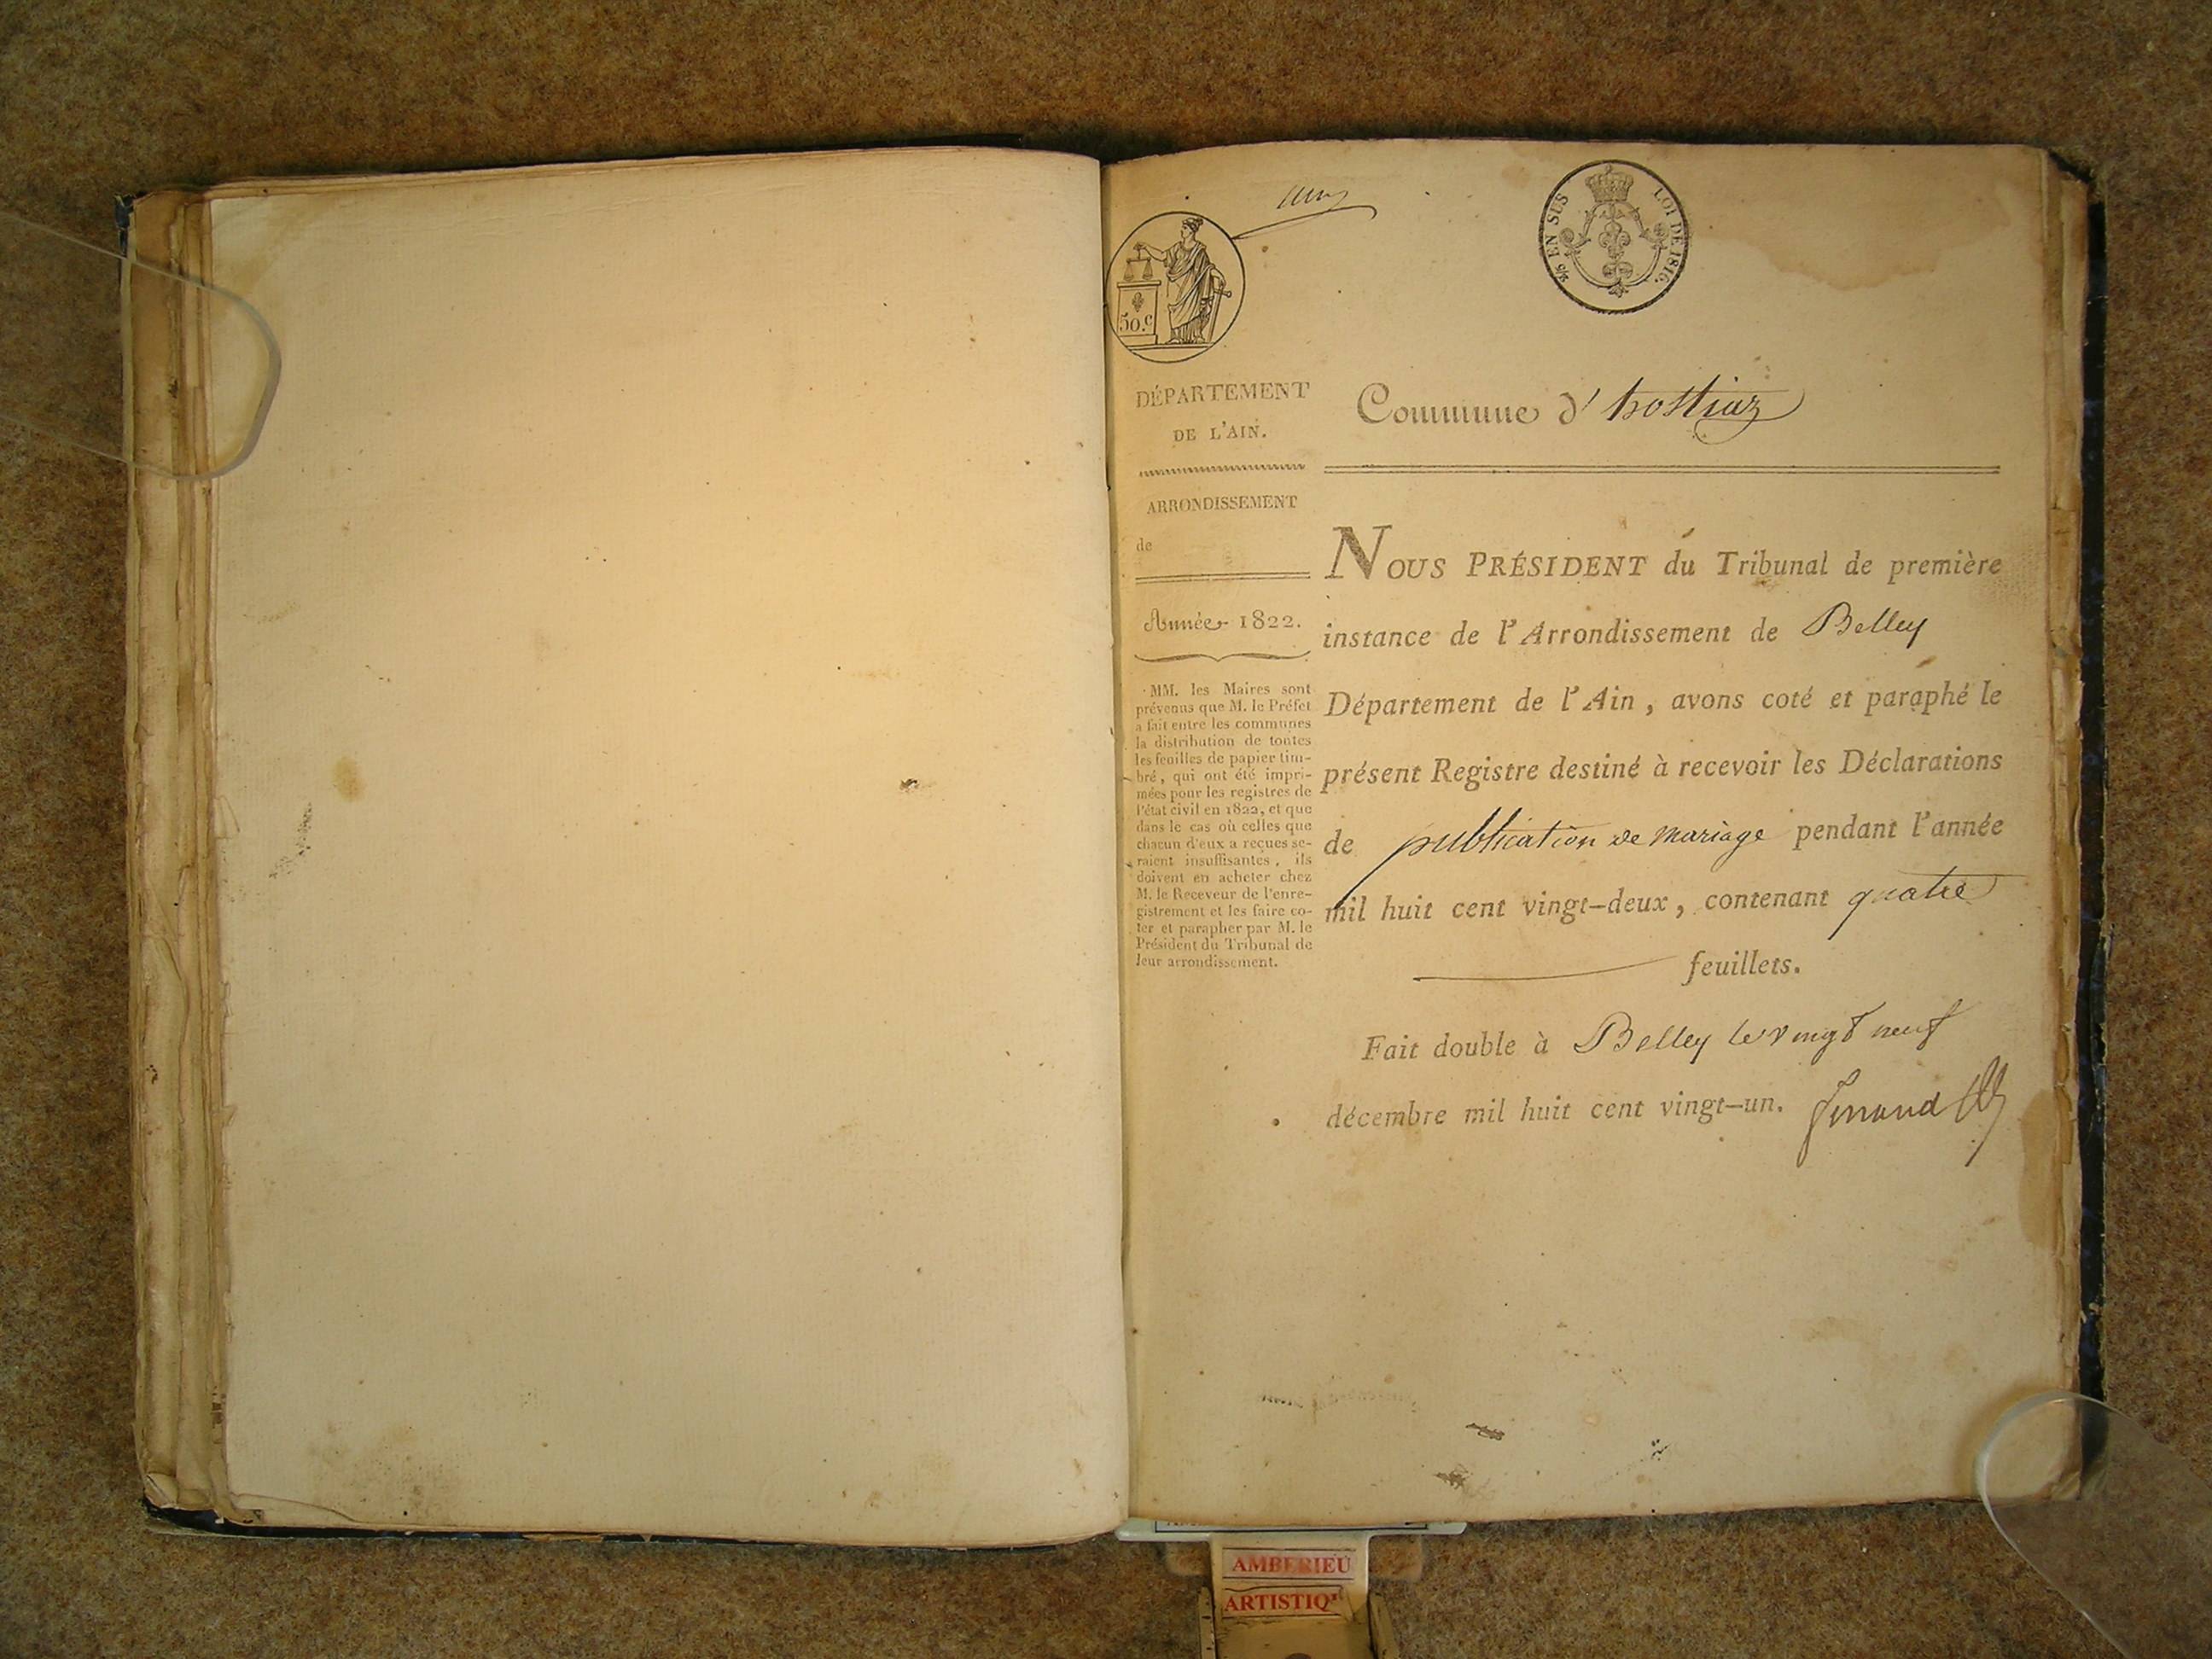 5/5 EN SUS LOI DE 1816.
50.c
DÉPARTEMENT
DE L'AIN.
ARRONDISSEMENT
de
Année 1822.
MM. les Maires sont
prévenus que M. le Préfet
a fait entre les communes
la distribution de toutes
les feuilles de papier tim-
bré, qui ont été impri-
mées pour les registres de
l'état civil en 1822, et que
dans le cas où celles que
chacun d'eux a reçues se-
raient insuffisantes, ils
doivent en acheter chez
M. le Receveur de l'enre-
gistrement et les faire co-
ter et parapher par M. le
Président du Tribunal de
leur arrondissement.
Commune d'hostiaz
NOUS PRÉSIDENT du Tribunal de première
instance de l'Arrondissement de Belley
Département de l'Ain, avons coté et paraphé le
présent Registre destiné à recevoir les Déclarations
de publication de mariage pendant l'année
mil huit cent vingt-deux, contenant quatre
feuillets.
Fait double à Belley le vingt neuf
décembre mil huit cent vingt-un.
AMBERIEU
ARTISTIQ